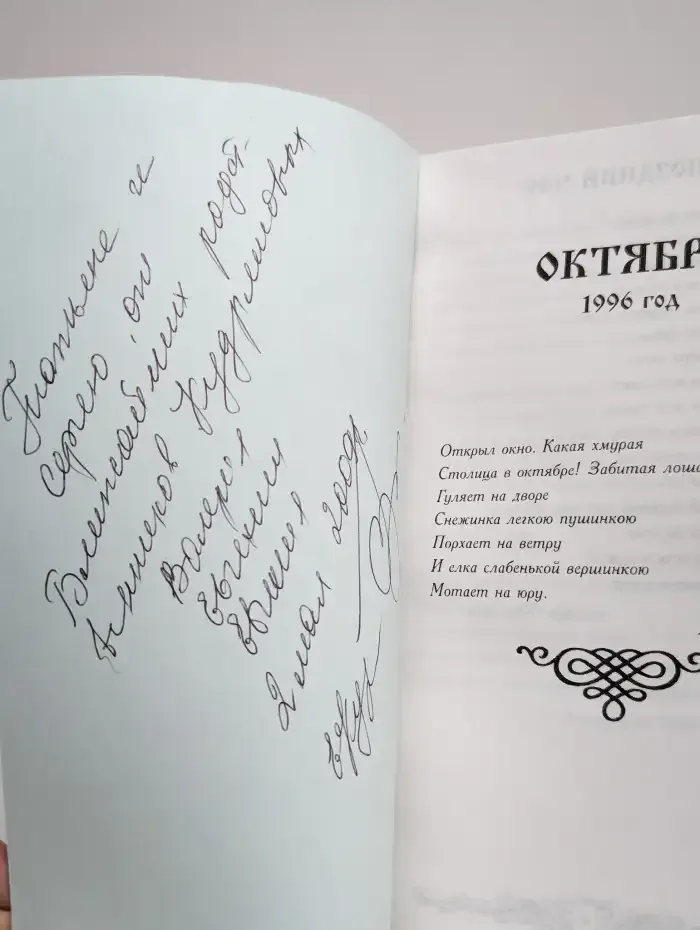 Татьяне и
Сергею от
Ближайших родст-
венников Кудряшовых
Валерия
Евгении
2 мая 2002г
ОКТЯБР
1996 год
Открыл окно. Какая хмурая
Столица в октябре! Забитая лоша
Гуляет на дворе
Снежинка легкою пушинкою
Порхает на ветру
И елка слабенькой вершинкою
Мотает на юру.